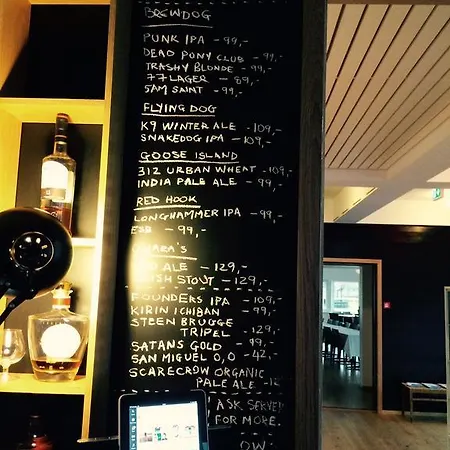 BREWDOG
PUNK IPA - 99,-
DEAD PONY CLUB - 99,-
TRASHY BLONDE - 99,-
77 LAGER - 89,-
5AM SAINT - 99,-
FLYING DOG
K9 WINTER ALE - 109,-
SNAKEDOG IPA - 109,-
GOOSE ISLAND
312 URBAN WHEAT - 109,-
INDIA PALE ALE - 99,-
RED HOOK
LONGHAMMER IPA - 99,-
ESB - 99,-
ALE - 129,-
STOUT - 129,-
FOUNDERS IPA - 109,-
KIRIN ICHIBAN - 99,-
STEEN BRUGGE
TRIPEL - 129,-
SATANS GOLD - 99,-
SAN MIGUEL 0,0 - 42,-
SCARECROW ORGANIC
PALE ALE - 12
ASK SERVED
FOR MORE.